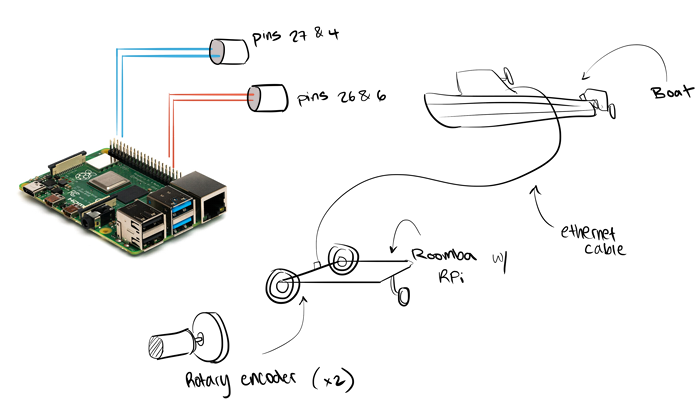 pins 27 & 4
pins 26 & 6
Boat
ethernet
cable
Roomba w/
RPi
Rotary encoder (x2)